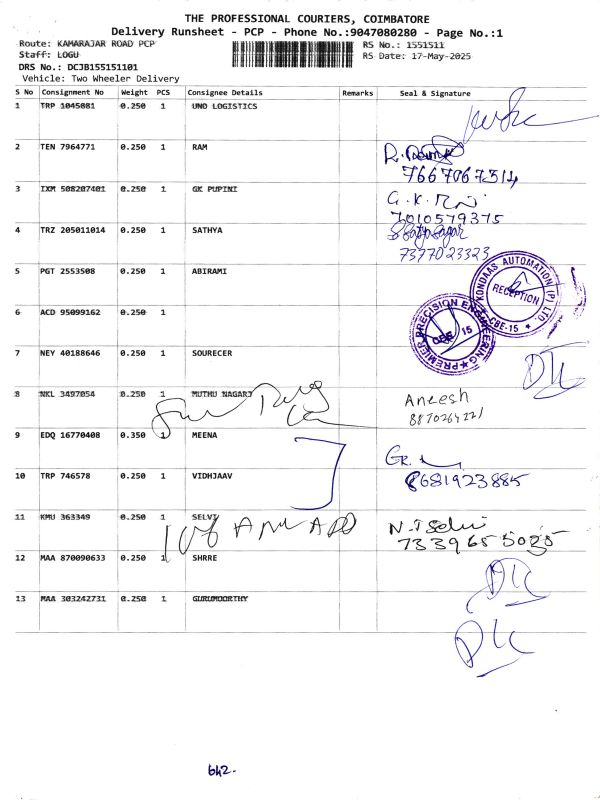 THE PROFESSIONAL COURIERS, COIMBATORE
Delivery Runsheet - PCP - Phone No.:9047080280 - Page No.:1
Route: KAMARAJAR ROAD PCP
RS No.: 1551511
Staff: LOGU
RS Date: 17-May-2025
DRS No.: DCJB155151101
Vehicle: Two Wheeler Delivery
S No Consignment No Weight PCS Consignee Details Remarks Seal & Signature
1 TRP 1045081 0.250 1 UNO LOGISTICS
2 TEN 7964771 0.250 1 RAM
7667067314
3 IXM 508207401 0.250 1 GK PUPINI
G.K.
7010579375
4 TRZ 205011014 0.250 1 SATHYA
7377023323
5 PGT 2553508 0.250 1 ABIRAMI
KONDAAS AUTOMATION (P) LTD.
RECEPTION
CBE-15
6 ACD 95099162 0.250 1
PREMIER PRECISION ENGINEERING
CBE 15
7 NEY 40188646 0.250 1 SOURECER
8 NKL 3497054 0.250 1 MUTHU NAGARJ
Aneesh
9 EDQ 16770408 0.350 1 MEENA
10 TRP 746578 0.250 1 VIDHJAAV
8681923885
11 KMU 363349 0.250 1 SELVI
7339655035
12 MAA 870090633 0.250 1 SHRRE
13 MAA 303242731 0.250 1 GURUMOORTHY
642.